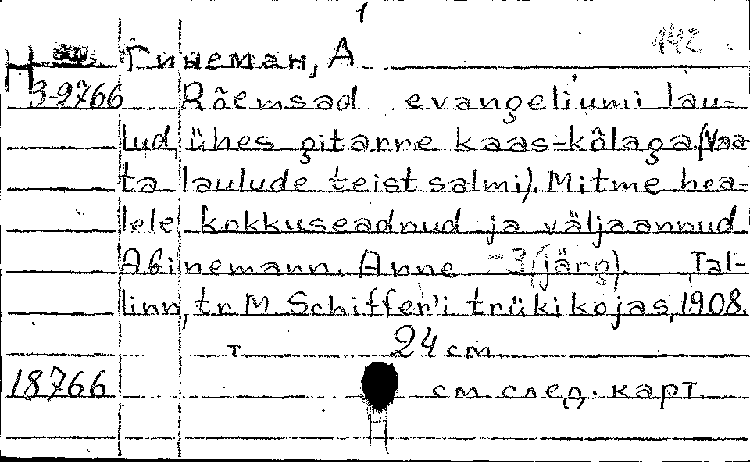 1
Гинеман, А 142
Н 3-2766 Rõemsad evangeliumi lau-
lud ühes gitarre kaas-kõlaga (Vaa-
ta laulude teist salmi). Mitme hea-
lele kokkuseadnud ja väljaannud
A. Ginemann. Anne - 3 (järg). Tal-
linn, tr. M. Schiffer'i trükikojas, 1908.
т 24 см
18766 см. след. карт.